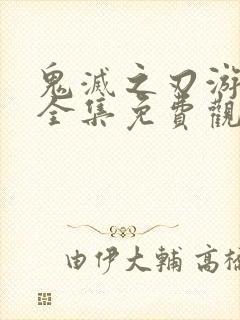 鬼滅之刃游
全集免費觀
由伊大輔 高橋